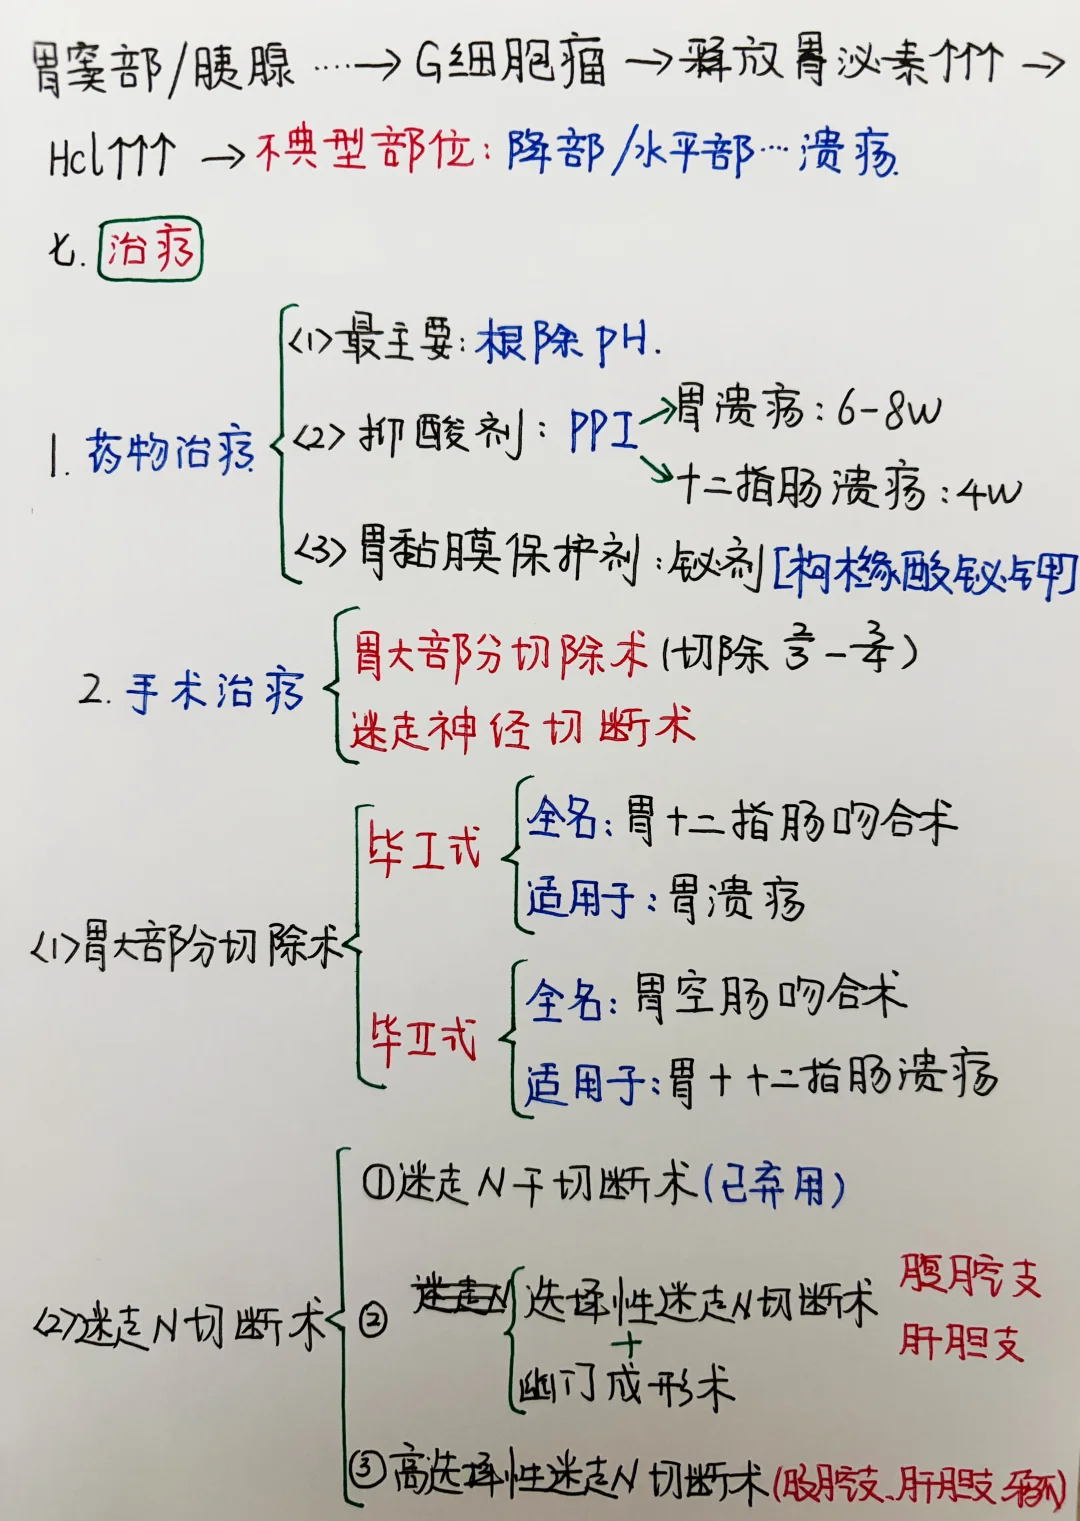 胃窦部/胰腺 ····→G细胞瘤→释放胃泌素↑↑↑→
Hcl↑↑↑ →不典型部位:降部/水平部…溃疡.
七.治疗
1.药物治疗
<1>最主要:根除PH.
<2>抑酸剂:PPI
胃溃疡:6-8w
十二指肠溃疡:4w
<3>胃黏膜保护剂:铋剂[枸橼酸铋钾]
2.手术治疗
胃大部分切除术(切除2/3-3/4)
迷走神经切断术
<1>胃大部分切除术
毕Ⅰ式
全名:胃十二指肠吻合术
适用于:胃溃疡
毕Ⅱ式
全名:胃空肠吻合术
适用于:胃++二指肠溃疡
<2>迷走N切断术
①迷走N干切断术(已弃用)
②
选择性迷走N切断术
+
幽门成形术
腹腔支
肝胆支
③高选择性迷走N切断术(腹腔支、肝胆支)